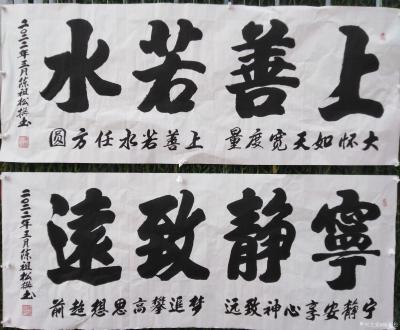 上善若水
大怀如天宽度量 上善若水任方圆
二〇二二年三月陈祖松撰书
寧静致遠
宁静安享心神致远 梦追攀高思想超前
二〇二二年三月陈祖松撰书